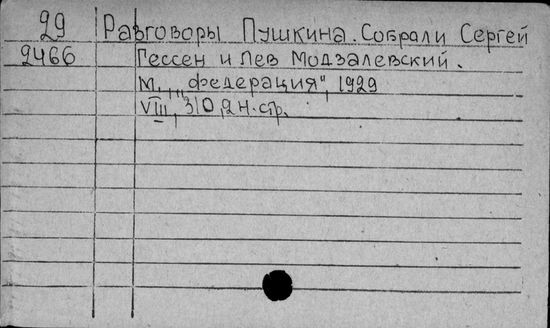 29 Разговоры Пушкина. Собрали Сергей
2466 Гессен и Лев Модзалевский.
М., „Федерация“, 1929
VIII, 310, 2 н. стр.